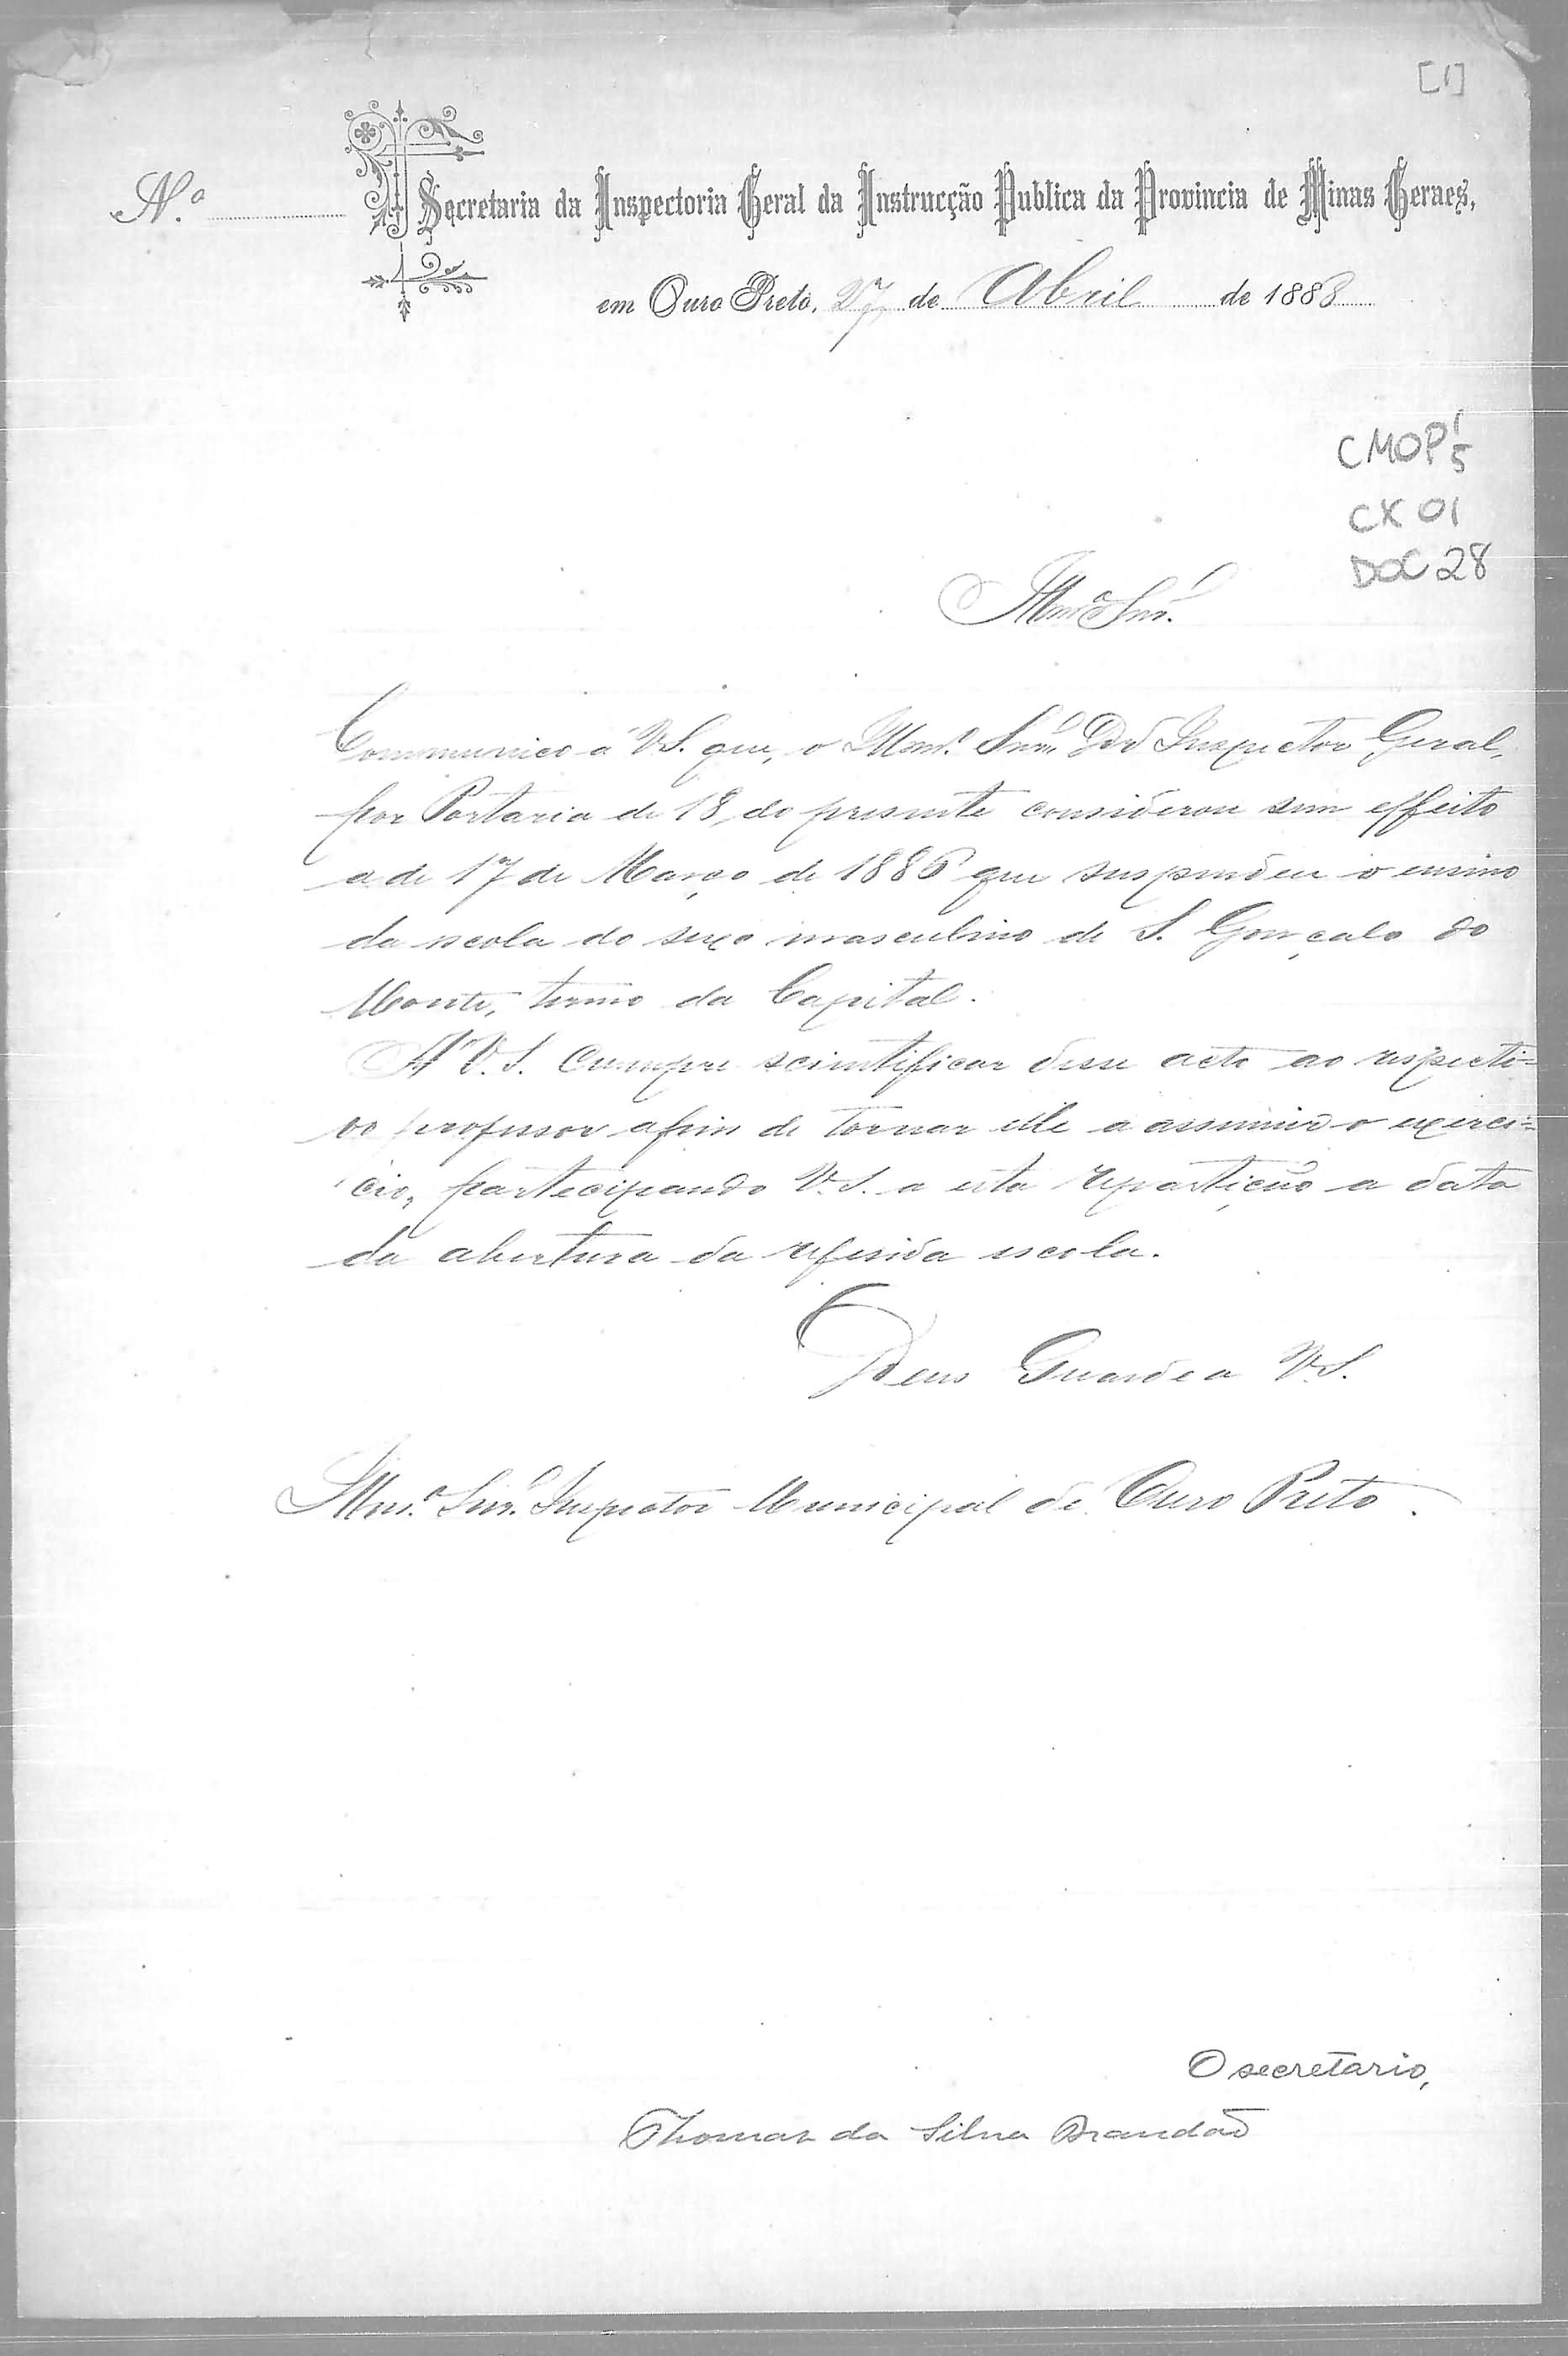 [1]
N.º
Secretaria da Inspectoria Geral da Instrucção Publica da Provincia de Minas Geraes,
em Ouro Preto, 27 de Abril de 1888
CMOP 1/5
CX 01
DOC 28
Illmº Snr.
Communico á V.S. que, o Illmº Snr. Dor Inspector Geral,
por Portaria de 18 do presente considerou sem effeito
a de 17 de Março de 1886 que suspendeu o ensino
da escola do sexo masculino de S. Gonçalo do
Monte, termo da Capital.
A' V.S. cumpre scientificar desse acto ao respecti=
vo professor afim de tornar elle a assumir o exerci=
cio, partecipando V.S. a esta repartição a data
da abertura da referida escola.
Deus Guarde a V.S.
Illmº Snr. Inspector Municipal de Ouro Preto.
O secretario,
Thomaz da Silva Brandão